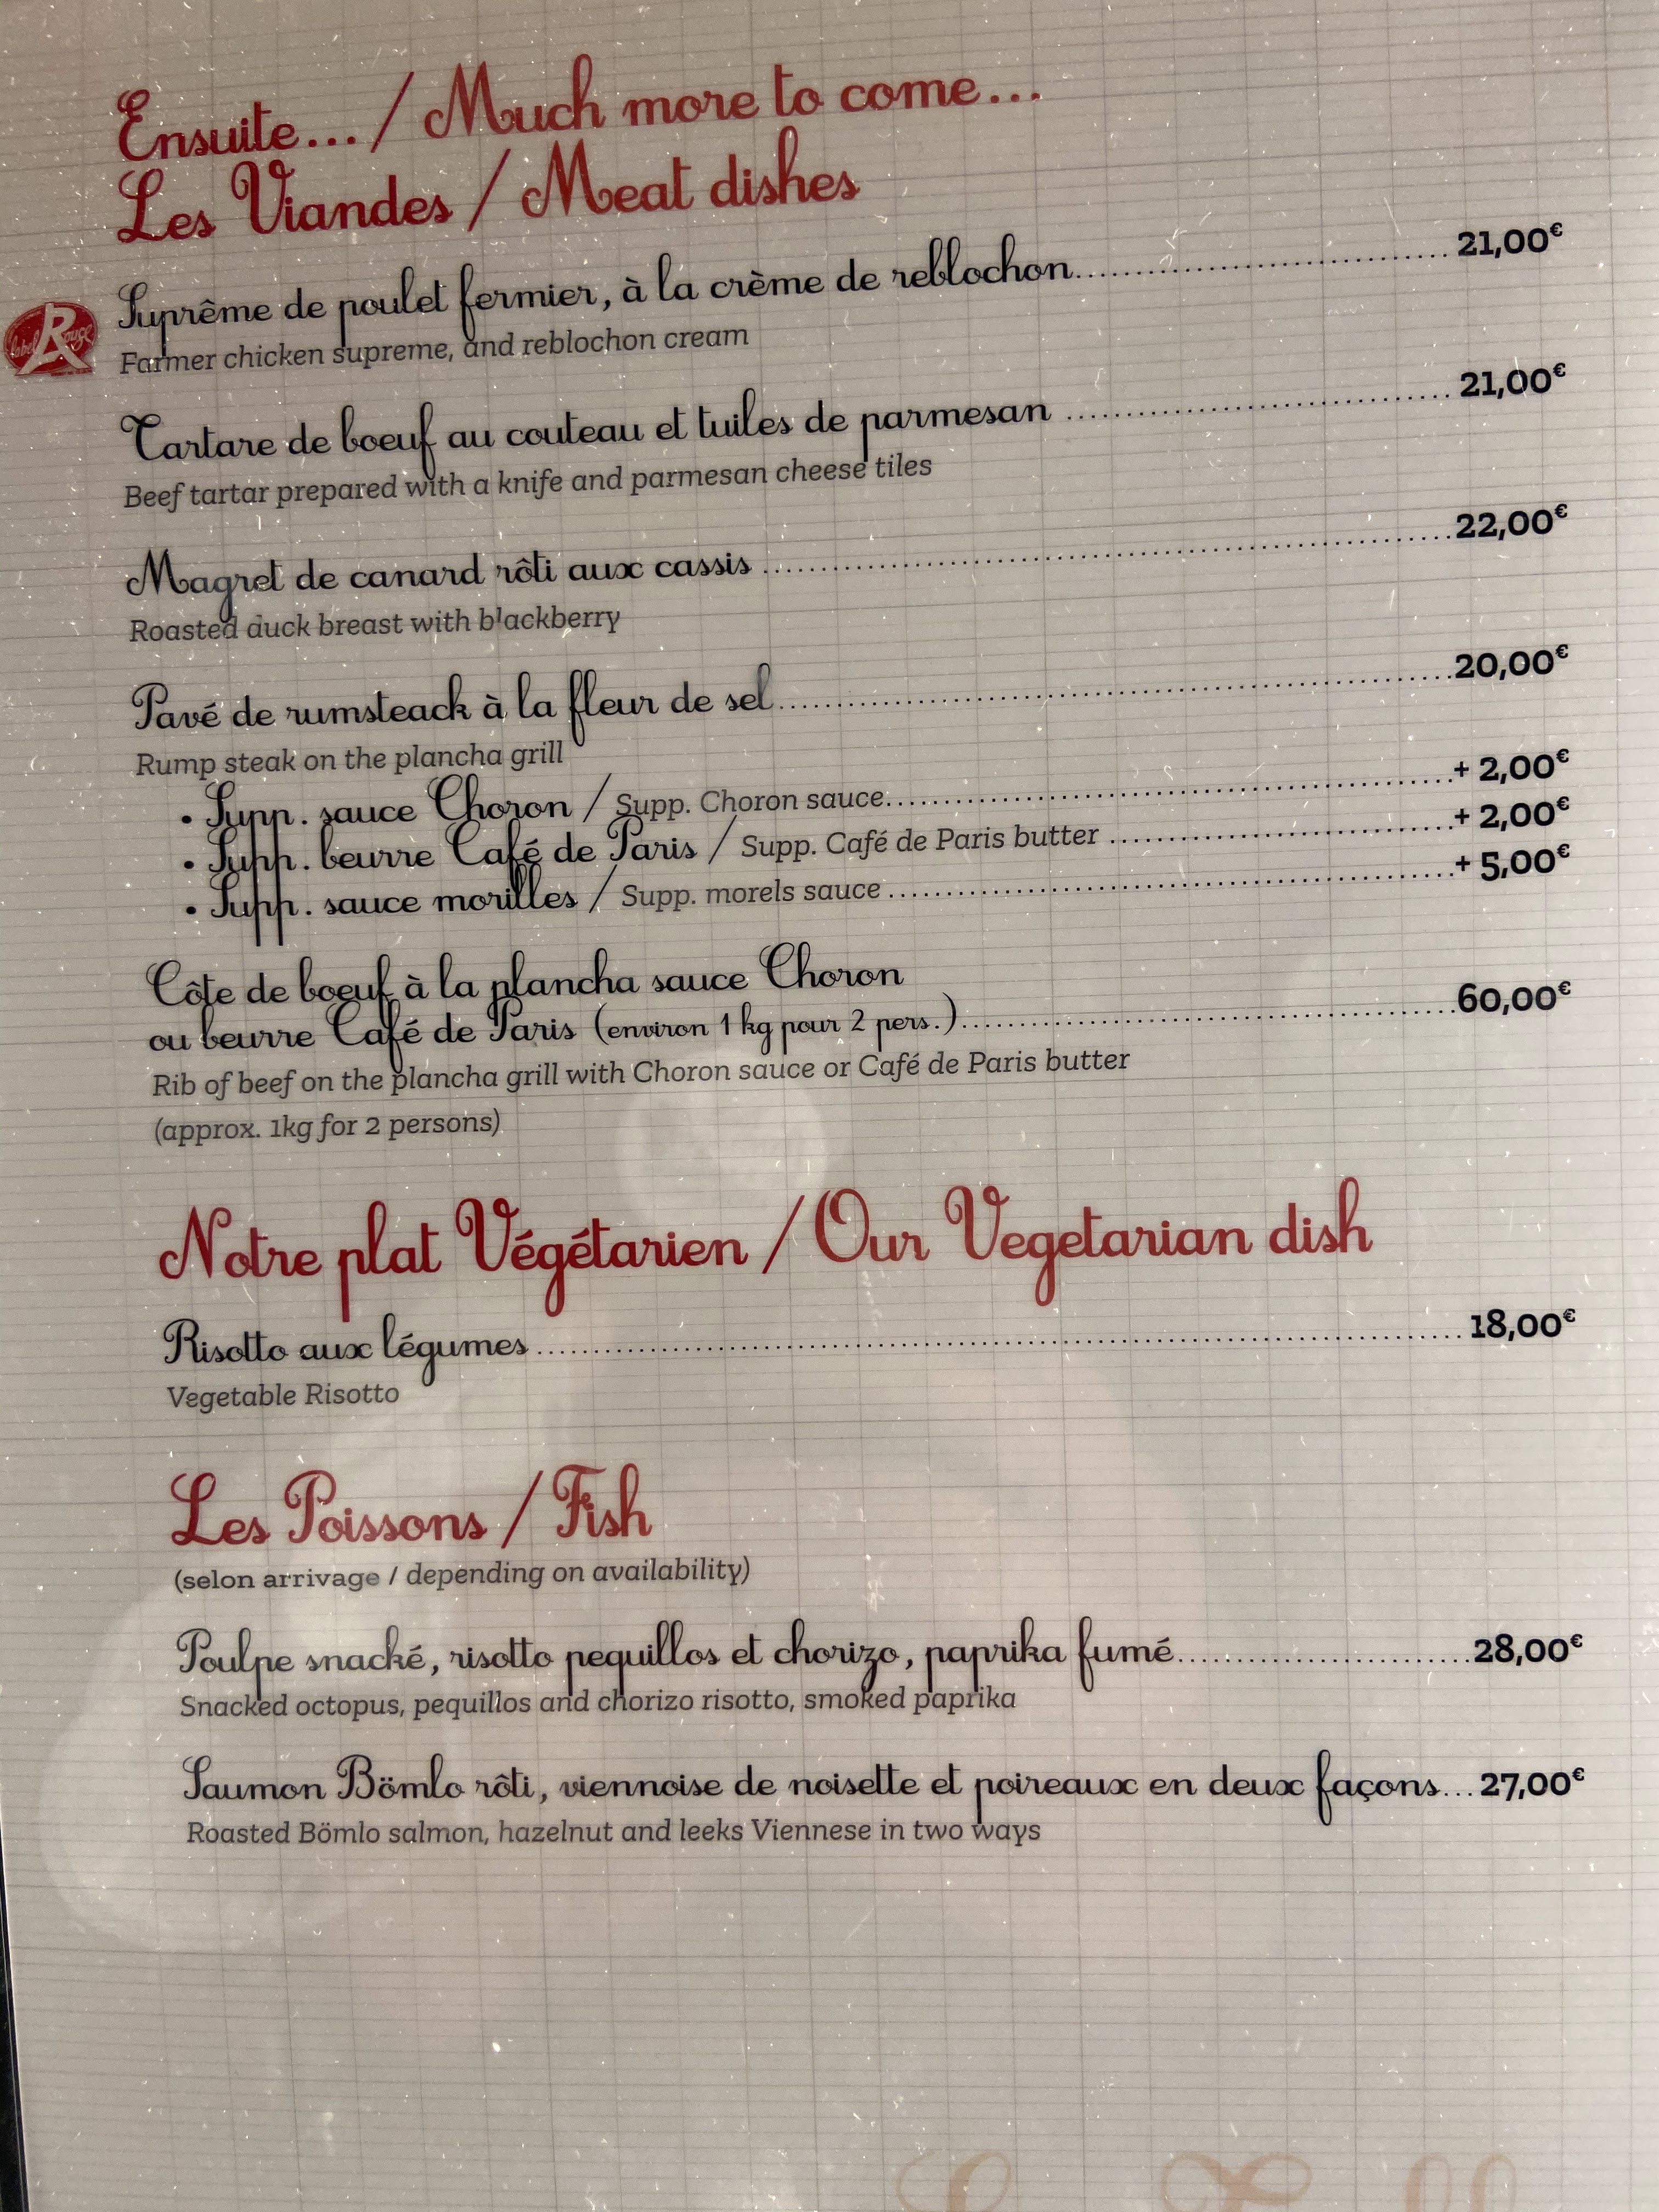 Ensuite... / Much more to come...
Les Viandes / Meat dishes
Label Rouge
Suprême de poulet fermier, à la crème de reblochon.......... 21,00€
Farmer chicken supreme, and reblochon cream
Tartare de boeuf au couteau et tuiles de parmesan .......... 21,00€
Beef tartar prepared with a knife and parmesan cheese tiles
Magret de canard rôti aux cassis .......... 22,00€
Roasted duck breast with blackberry
Pavé de rumsteack à la fleur de sel.......... 20,00€
Rump steak on the plancha grill
• Supp. sauce Choron / Supp. Choron sauce.......... + 2,00€
• Supp. beurre Café de Paris / Supp. Café de Paris butter .......... + 2,00€
• Supp. sauce morilles / Supp. morels sauce .......... + 5,00€
Côte de boeuf à la plancha sauce Choron
ou beurre Café de Paris (environ 1 kg pour 2 pers.).......... 60,00€
Rib of beef on the plancha grill with Choron sauce or Café de Paris butter
(approx. 1kg for 2 persons)
Notre plat Végétarien / Our Vegetarian dish
Risotto aux légumes .......... 18,00€
Vegetable Risotto
Les Poissons / Fish
(selon arrivage / depending on availability)
Poulpe snacké, risotto pequillos et chorizo, paprika fumé.......... 28,00€
Snacked octopus, pequillos and chorizo risotto, smoked paprika
Saumon Bömlo rôti, viennoise de noisette et poireaux en deux façons... 27,00€
Roasted Bömlo salmon, hazelnut and leeks Viennese in two ways